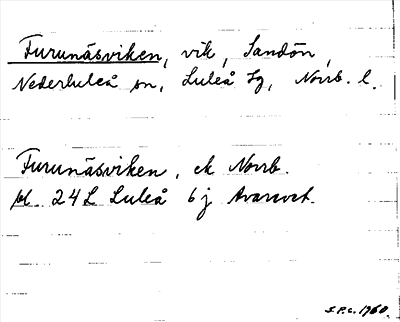 Furunäsviken, vik, Sandön,
Nederluleå sn, Luleå tg, Norrb. l.
Furunäsviken, ek Norrb.
bl. 24 L Luleå 6 j
S.P.C. 1960.